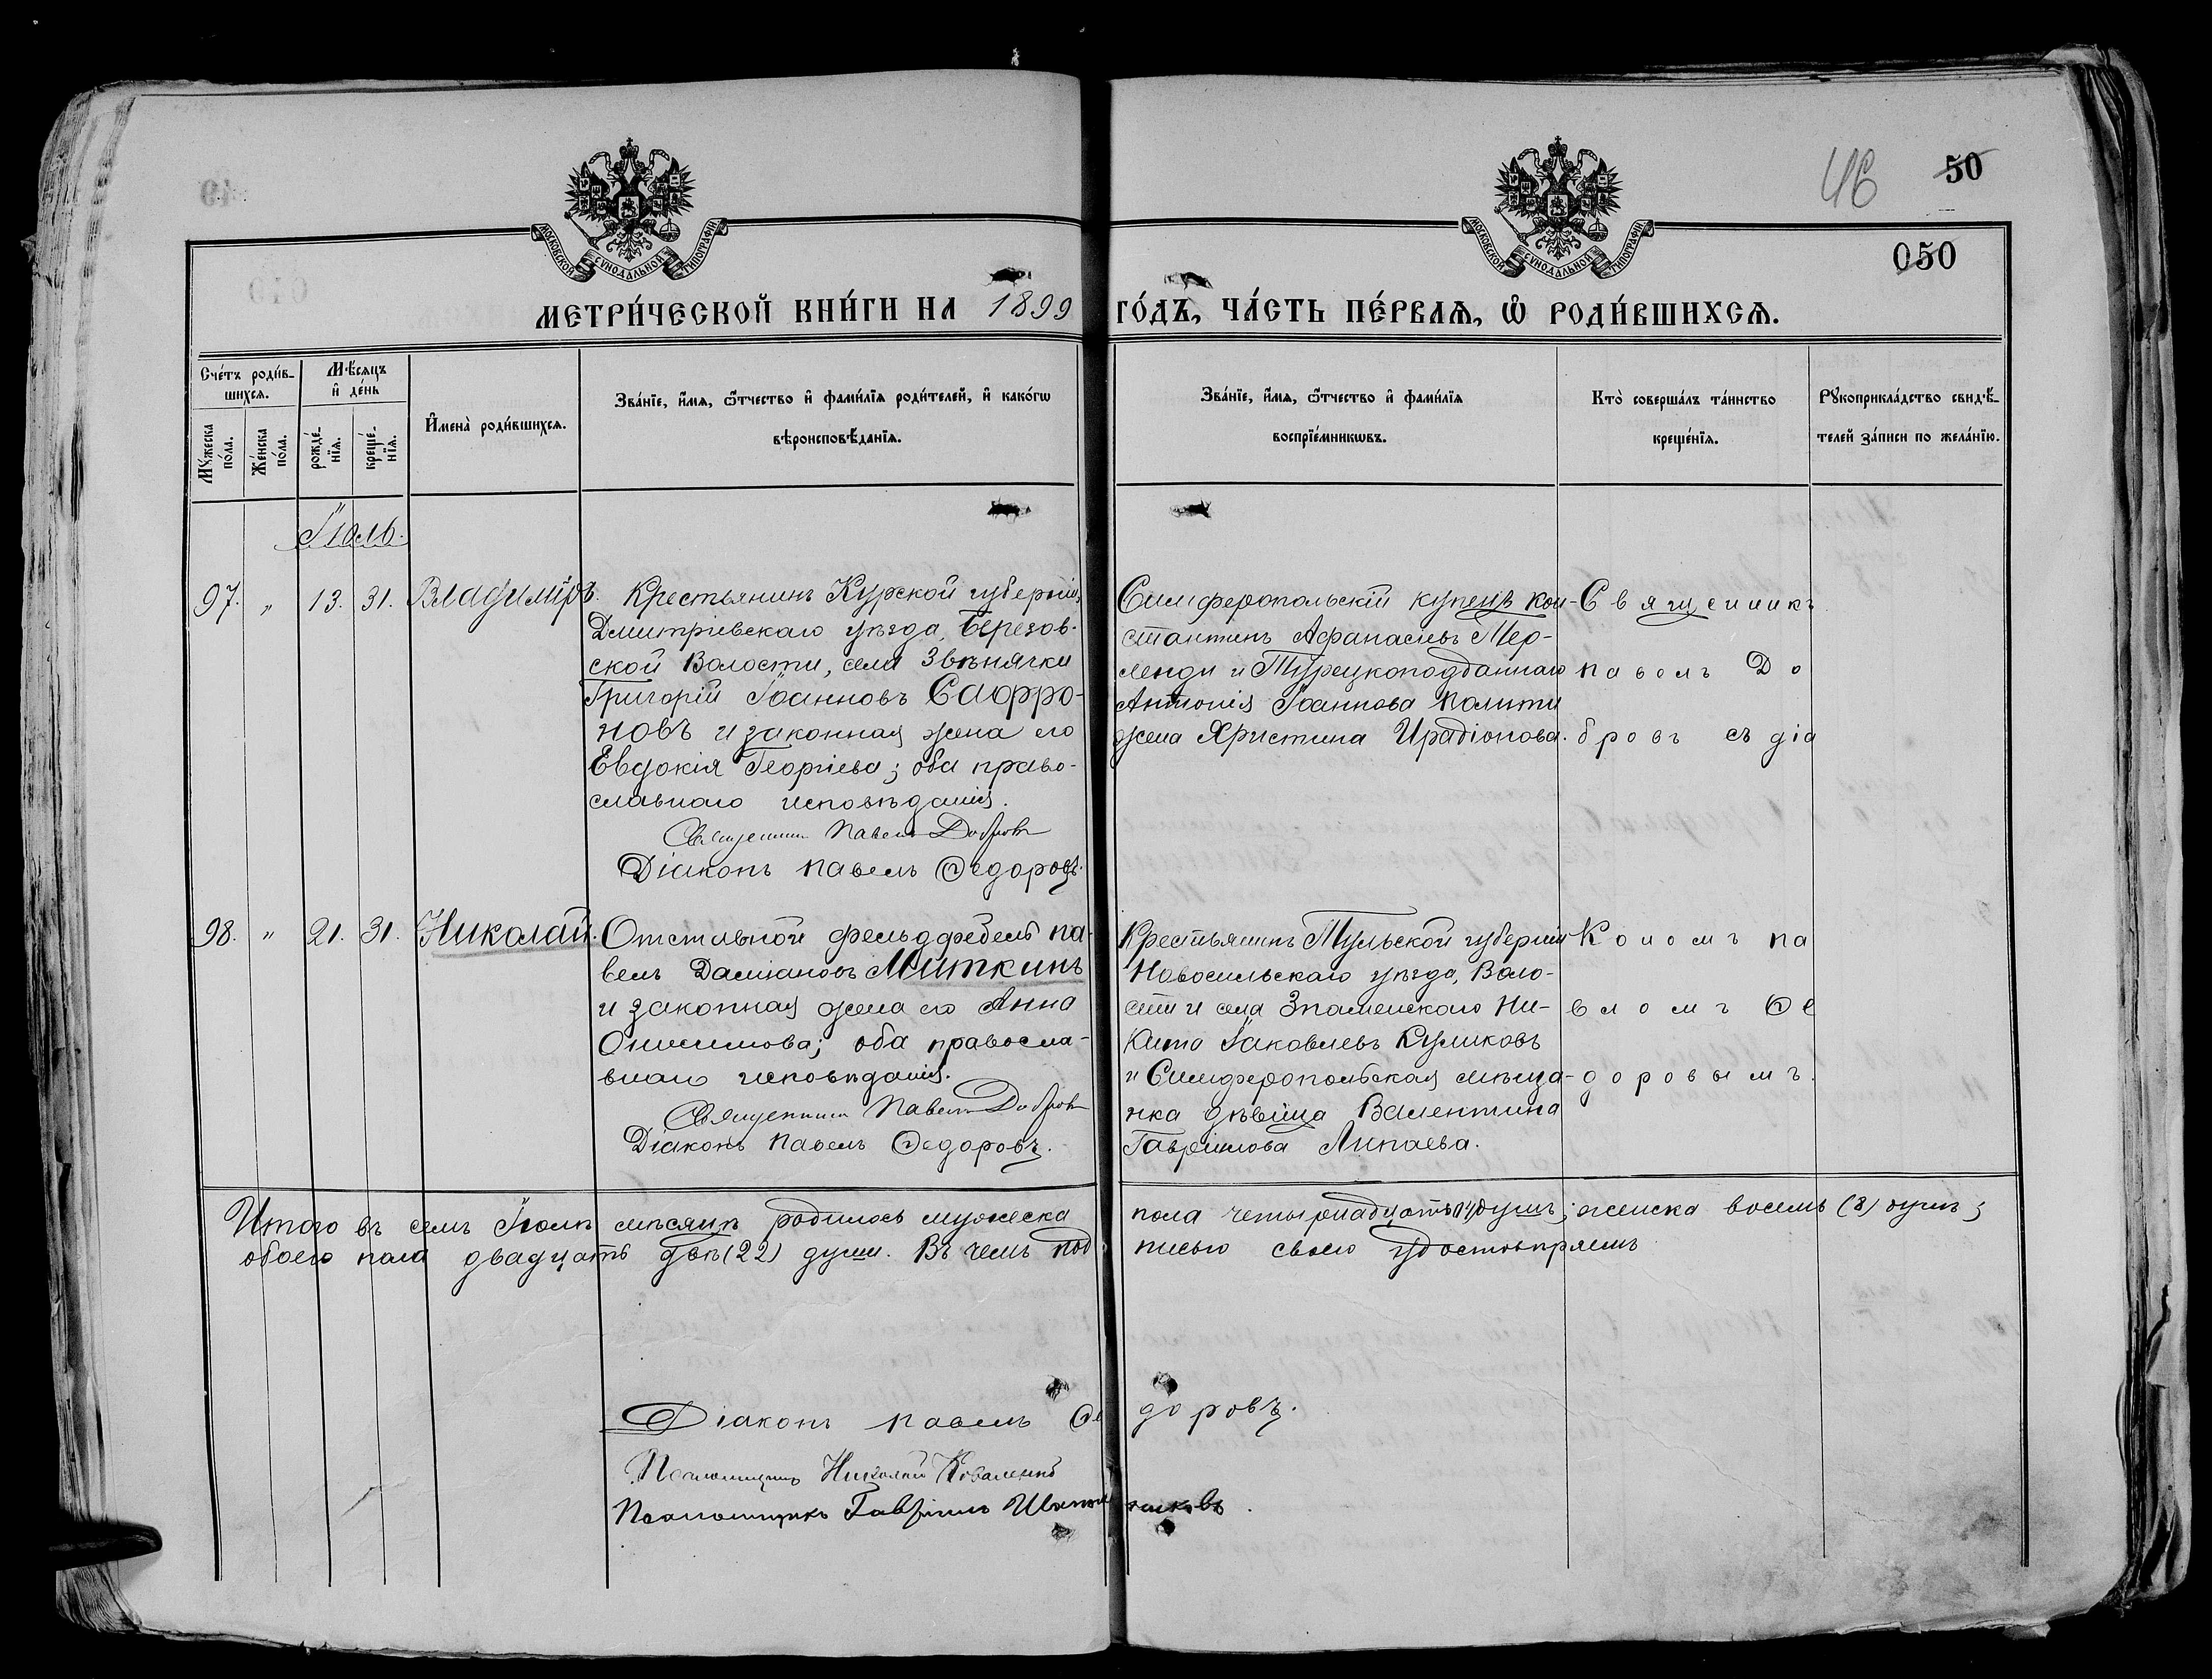 46
50
050
МОСКОВСКОЙ СѴНОДАЛЬНОЙ ТИПОГРАФІИ
МОСКОВСКОЙ СѴНОДАЛЬНОЙ ТИПОГРАФІИ
МЕТРИ́ЧЕСКОЙ КНИ́ГИ НА 1899 ГО́ДЪ, ЧА́СТЬ ПЕ́РВАѦ, Ѡ҆ РОДИ́ВШИХСѦ.
Сче́тъ роди́в-
шихсѧ.
Мꙋ́жеска по́ла.
Же́нска по́ла.
Мѣ́сѧцъ
и҆ де́нь
рожде́-
нїѧ.
креще́-
нїѧ.
И҆мена̀ роди́вшихсѧ.
Зва́нїе, и҆́мѧ, ѻ҆́тчество и҆ фами́лїѧ роди́телей, и҆ како́гѡ
вѣроисповѣ́данїѧ.
Зва́нїе, и҆́мѧ, ѻ҆́тчество и҆ фами́лїѧ
воспрїе́мникѡвъ.
Кто̀ соверша́лъ та́инство
креще́нїѧ.
Рꙋкоприкла́дство свидѣ́-
телей за́писи по жела́нїю.
Іюль.
97. " 13. 31. Владиміръ.
Крестьянинъ Курской губерніи,
Дмитріевскаго уѣзда, Березов-
ской Волости, села Звѣнячки
Григорій Іоанновъ Сафро-
новъ и законная жена его
Евдокія Георгіева; оба право-
славнаго исповѣданія.
Священникъ Павелъ Добровъ
Діаконъ Павелъ Ѳедоровъ.
Симферопольскій купецъ Кон-
стантинъ Афанасьевъ Мер-
ленди и Турецкоподданнаго
Антонія Іоаннова
жена Христина Иродіонова.
Священникъ
Павелъ До
бровъ съ діа
98. " 21. 31. Николай.
Отставной фельдфебель Па-
велъ Даміановъ Миткинъ
и законная жена его Анна
Онисимова; оба правосла-
внаго исповѣданія.
Священникъ Павелъ Добровъ
Діаконъ Павелъ Ѳедоровъ.
Крестьянинъ Тульской губерніи
Новосильскаго уѣзда, Воло-
сти и села Знаменскаго Ни-
кита Іаковлевъ Куликовъ
и Симферопольская мѣща-
нка дѣвица Валентина
Гавріилова Липаева.
кономъ Па
вломъ Ѳе
доровымъ.
Итого въ семъ Іюлѣ мѣсяцѣ родилось мужеска пола четырнадцать (14) душъ; женска восемь (8) душъ;
обоего пола двадцать двѣ (22) души. Въ чемъ под писью своею удостовѣряемъ
Діаконъ Павелъ Ѳе доровъ.
Псаломщикъ Николай Коваленко
Псаломщикъ Гавріилъ